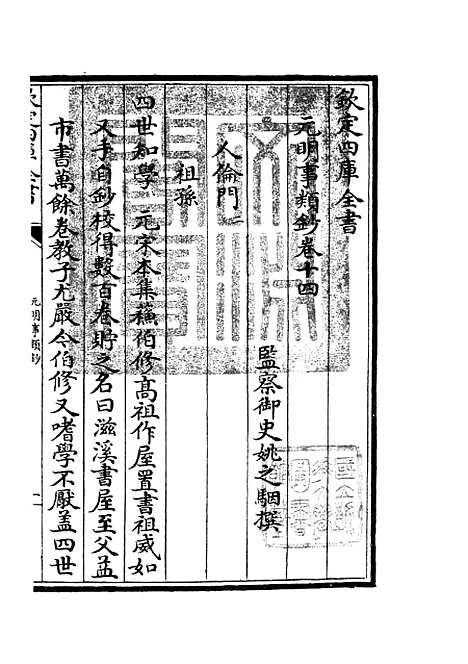 欽定四庫全書
元明事類鈔卷十四
監察御史姚之駰撰
人倫門一
祖孫
四世知學　元宋本集蘇伯修高祖作屋置書祖威如
又手自鈔校得數百卷貯之名曰滋溪書屋至父益
市書萬餘卷教子尤嚴今伯修又嗜學不厭蓋四世
欽定四庫全書
元明事類鈔